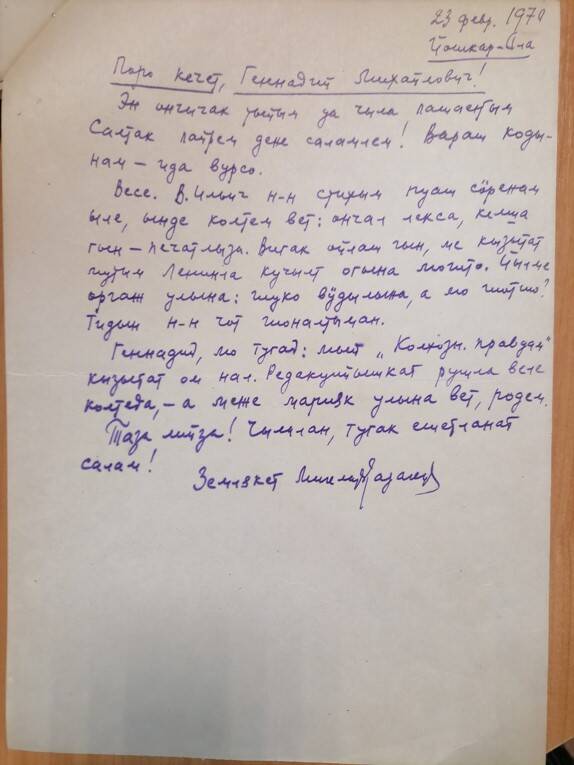 23 февр. 1970
Йошкар-Ола
Поро кече, Геннадий Михайлович!
Эн ончычак тыйым да чыла пашаеҥым
Салтак пайрем дене саламлем! Вараш коды-
нам – ида вурсо.
Весе. В. Ильич н-н стихым пуаш сӧренам
ыле, ынде колтем вет: ончал лекса, келша
гын – печатлыза. Вигак ойлаш гын, ме кызытат
Ленинла кучылт огына мошто.
улына: шуко вӱдылына, а мо шотшо?
Тидын н-н чот шоналтыман.
Геннадий, мо тугай: мый „Колхозн. правдам"
кызытат ом нал. Редакцийышкат рушла веле
колтеда, – а меже марийк улына вет, родем.
Таза лийза! Чылалан, тугак ешетланат
салам!
Землякет